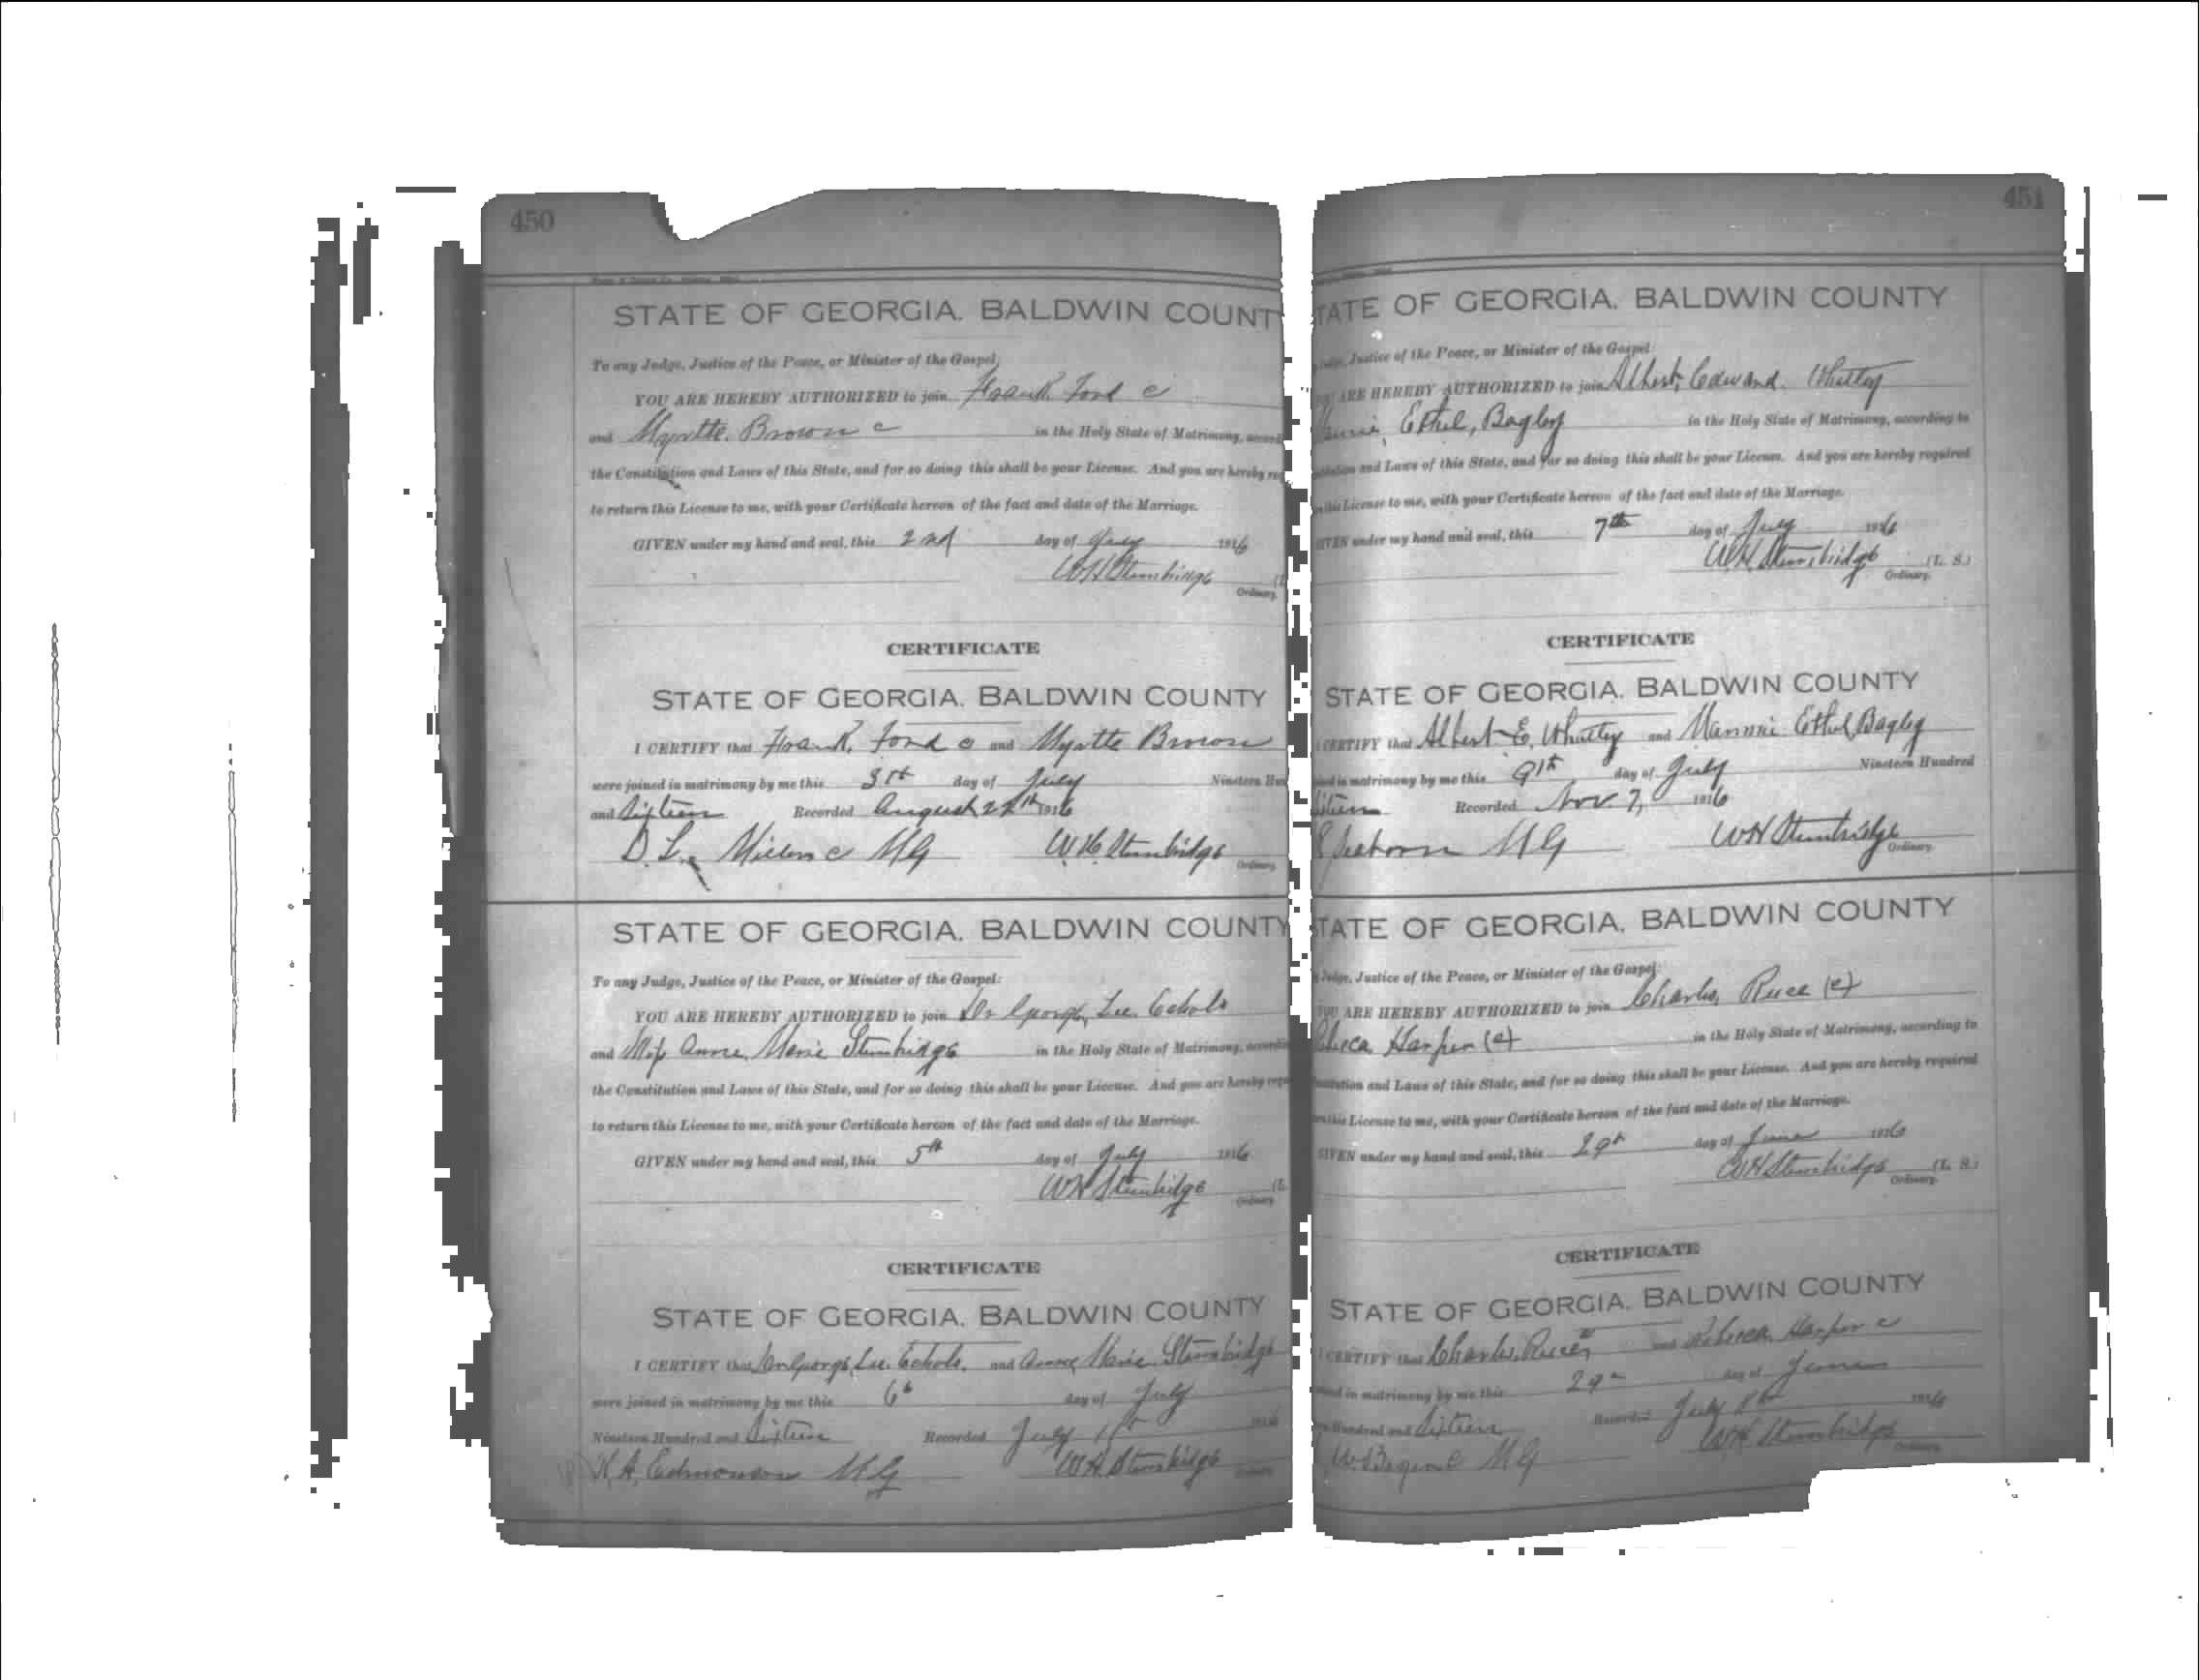 450
STATE OF GEORGIA. BALDWIN COUNT
To any Judge, Justice of the Peace, or Minister of the Gospel:
YOU ARE HEREBY AUTHORIZED to join Frank Ford c
and Myrtte Brown c in the Holy State of Matrimony, accord
the Constitution and Laws of this State, and for so doing this shall be your License. And you are hereby re
to return this License to me, with your Certificate hereon of the fact and date of the Marriage.
GIVEN under my hand and seal, this 2nd day of July 1916
W H Stembridge (L
Ordinary.
CERTIFICATE
STATE OF GEORGIA. BALDWIN COUNTY
I CERTIFY that Frank Ford c and Myrtte Brown
were joined in matrimony by me this 3rd day of July Nineteen Hun
and Sixteen Recorded August 1916
D. L. c M G W. H. Stembridge
Ordinary.
STATE OF GEORGIA. BALDWIN COUNTY
To any Judge, Justice of the Peace, or Minister of the Gospel:
YOU ARE HEREBY AUTHORIZED to join Dr George Lee Echols
and Miss Anne Marie Stembridge in the Holy State of Matrimony, accordin
the Constitution and Laws of this State, and for so doing this shall be your License. And you are hereby requ
to return this License to me, with your Certificate hereon of the fact and date of the Marriage.
GIVEN under my hand and seal, this 5th day of July 1916
W H Stembridge (L
Ordinary.
CERTIFICATE
STATE OF GEORGIA. BALDWIN COUNTY
I CERTIFY that Dr George Lee Echols and Anne Marie Stembridge
were joined in matrimony by me this 6th day of July
Nineteen Hundred and Sixteen Recorded July 1916
H. A. Edmondson M G W H Stembridge
Ordinary.
451
TATE OF GEORGIA. BALDWIN COUNTY
Judge, Justice of the Peace, or Minister of the Gospel:
YOU ARE HEREBY AUTHORIZED to join Albert Edward Whatley
Ethel Bagley in the Holy State of Matrimony, according to
and Laws of this State, and for so doing this shall be your License. And you are hereby required
this License to me, with your Certificate hereon of the fact and date of the Marriage.
GIVEN under my hand and seal, this 7th day of July 1916
W. H. Stembridge (L. S.)
Ordinary.
CERTIFICATE
STATE OF GEORGIA. BALDWIN COUNTY
I CERTIFY that Albert E. Whatley and Ethel Bagley
in matrimony by me this 9th day of July Nineteen Hundred
Recorded Nov. 7, 1916
M G W H Stembridge
Ordinary.
TATE OF GEORGIA. BALDWIN COUNTY
Judge, Justice of the Peace, or Minister of the Gospel:
YOU ARE HEREBY AUTHORIZED to join Charles (c)
Harper (c) in the Holy State of Matrimony, according to
and Laws of this State, and for so doing this shall be your License. And you are hereby required
this License to me, with your Certificate hereon of the fact and date of the Marriage.
GIVEN under my hand and seal, this 29th day of June 1916
W H Stembridge (L. S.)
Ordinary.
CERTIFICATE
STATE OF GEORGIA. BALDWIN COUNTY
I CERTIFY that Charles and Rebecca Harper c
in matrimony by me this 29th day of June
Hundred and Sixteen Recorded July 1916
M G W H Stembridge
Ordinary.